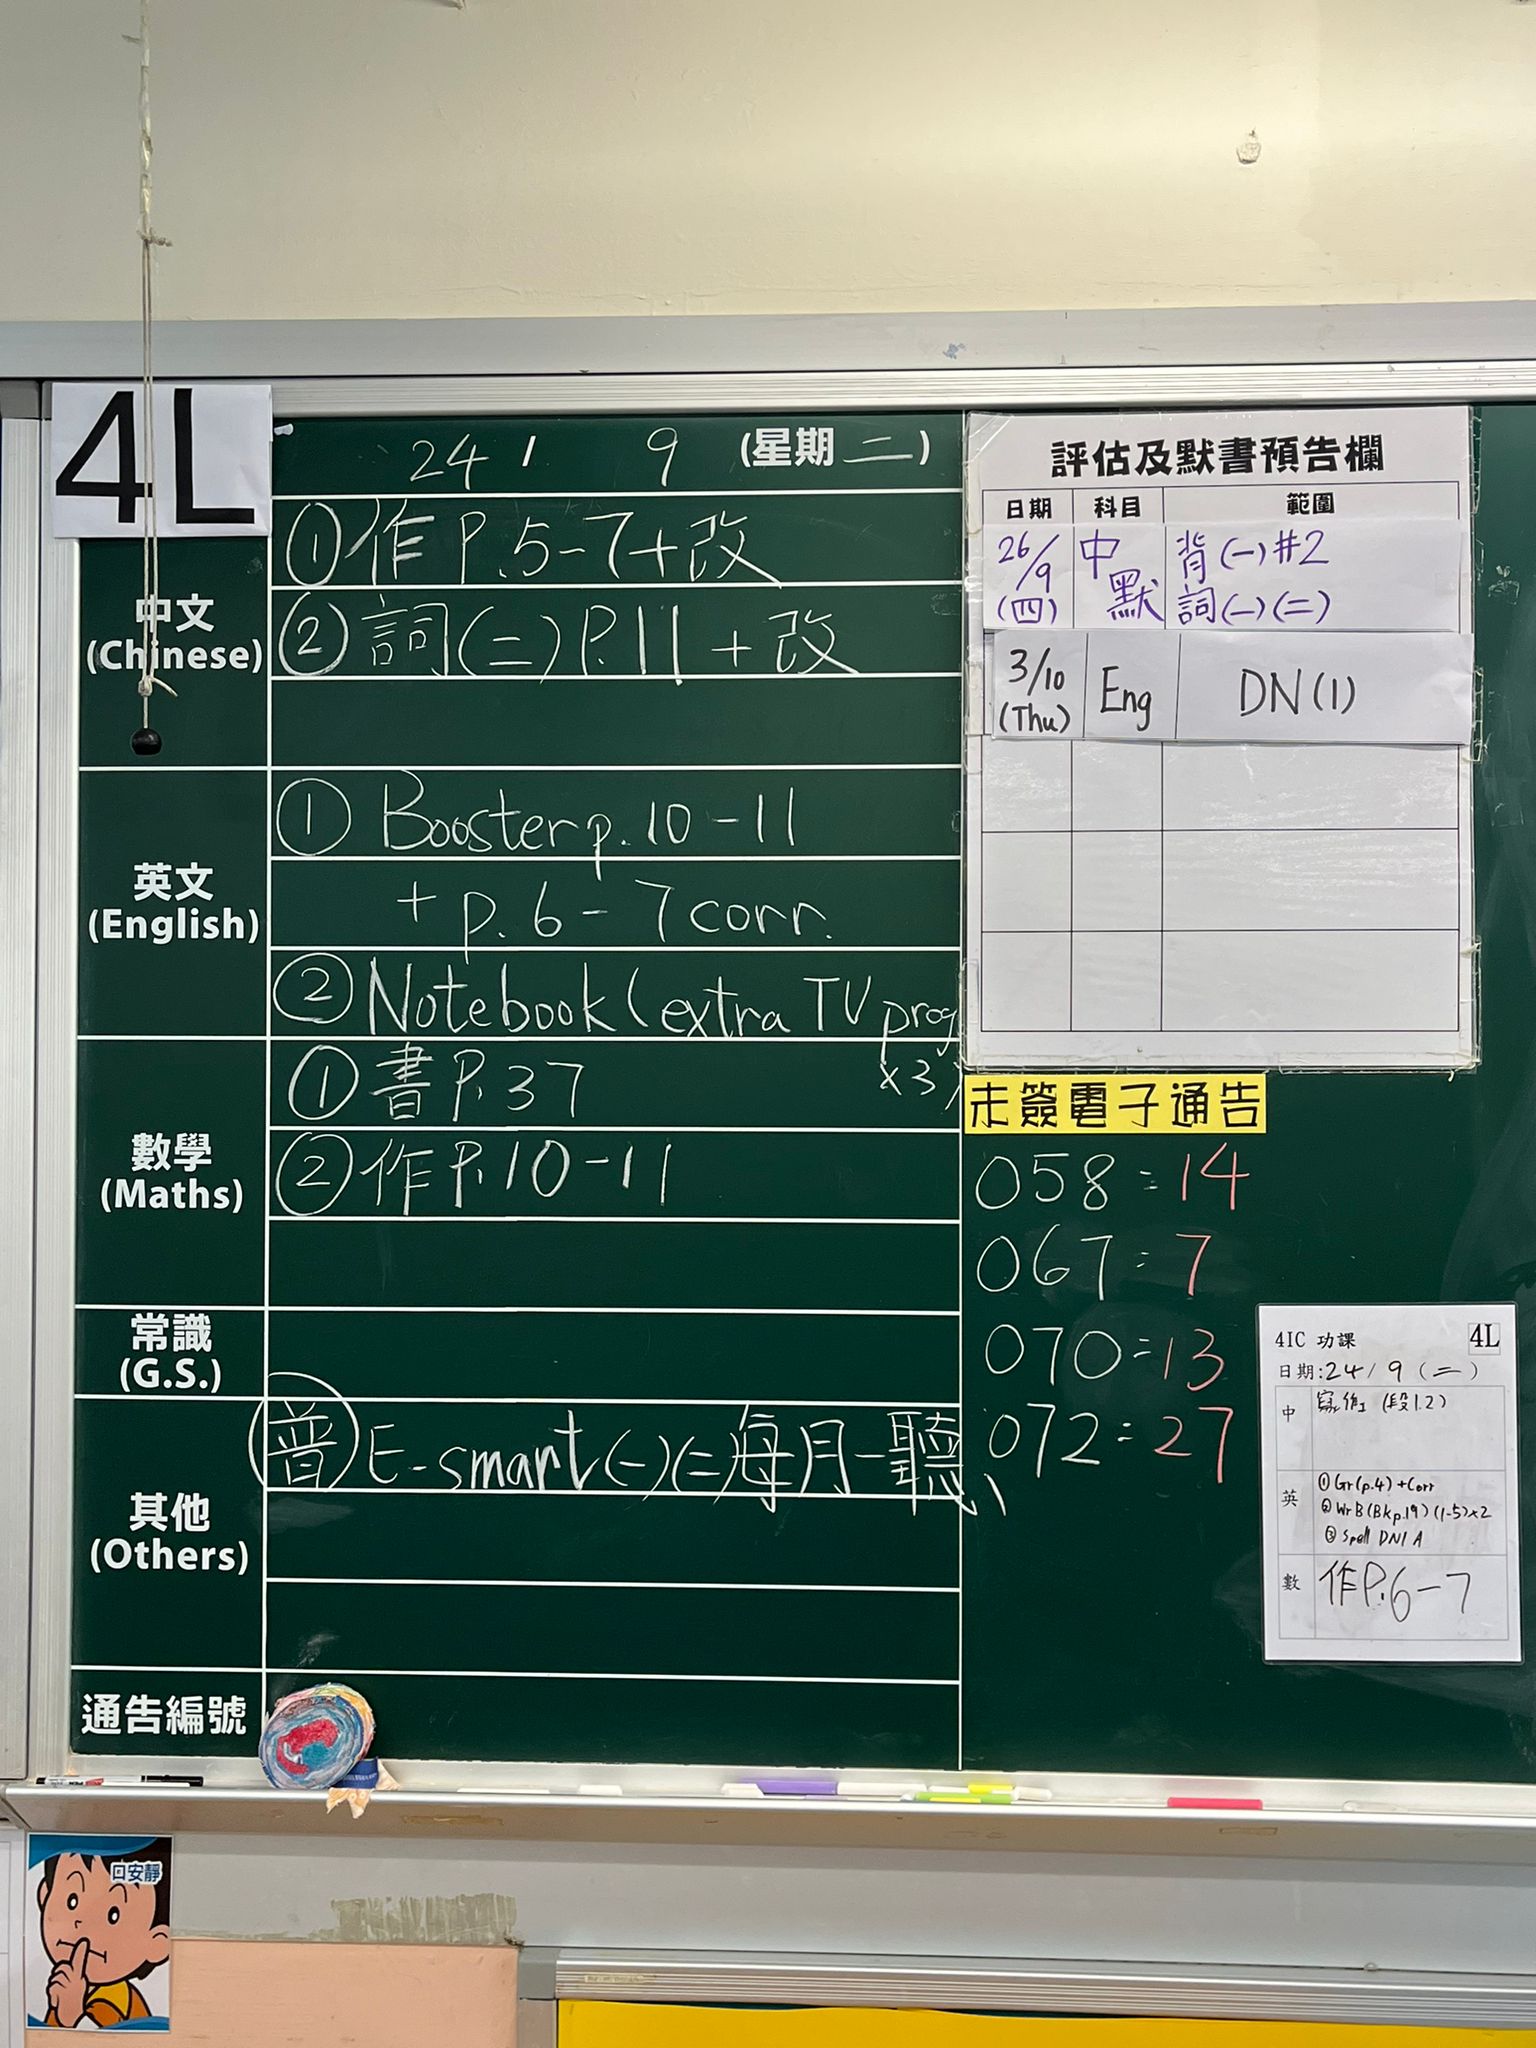 4L
24 / 9 (星期二)
中文
(Chinese)
① 作 P.5-7+改
② 詞(二)P.11 + 改
英文
(English)
① Booster p.10-11
+ p.6-7 corr.
② Notebook (extra TV prog
x3)
數學
(Maths)
① 書 P.37
② 作 P.10-11
常識
(G.S.)
其他
(Others)
普 E-smart(一)(二)每月一聽
通告編號
評估及默書預告欄
日期 科目 範圍
26/9 (四) 中默 背(一)#2
詞(一)(二)
3/10 (Thu) Eng DN(1)
未簽電子通告
058 = 14
067 = 7
070 = 13
072 = 27
4IC 功課 4L
日期:24/9(二)
中 (段1.2)
英 ① Gr(p.4)+Corr
② WrB(Bk p.19)(1-5)x2
③ Spell DN1 A
數 作P.6-7
口安靜